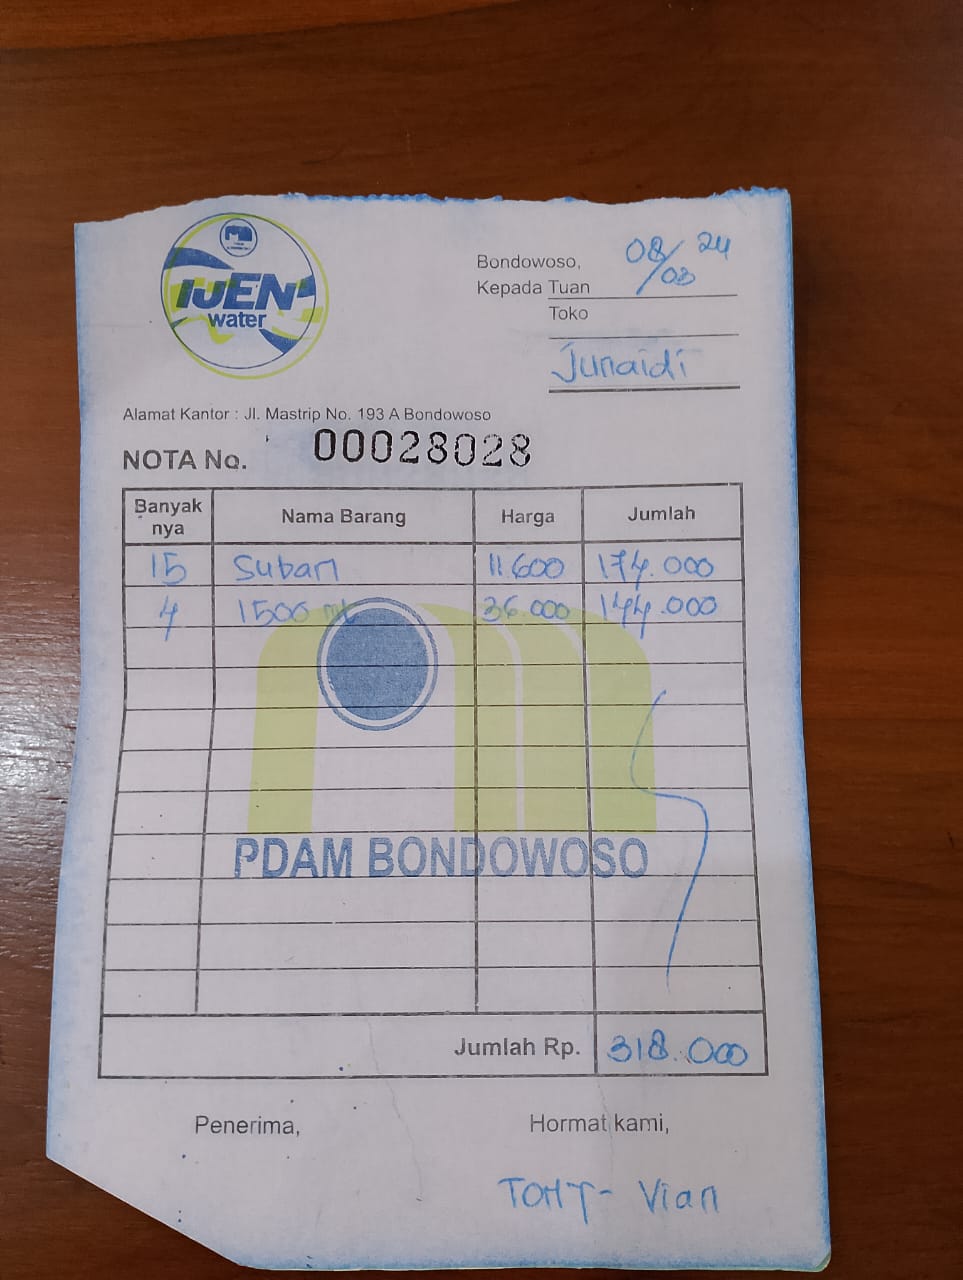 IJEN
water
Bondowoso, 08/03 24
Kepada Tuan
Toko
Junaidi
Alamat Kantor : Jl. Mastrip No. 193 A Bondowoso
NOTA No. 00028028
Banyak nya Nama Barang Harga Jumlah
15 Suban 11.600 174.000
4 1500 ml 36.000 144.000
PDAM BONDOWOSO
Jumlah Rp. 318.000
Penerima, Hormat kami,
Vian